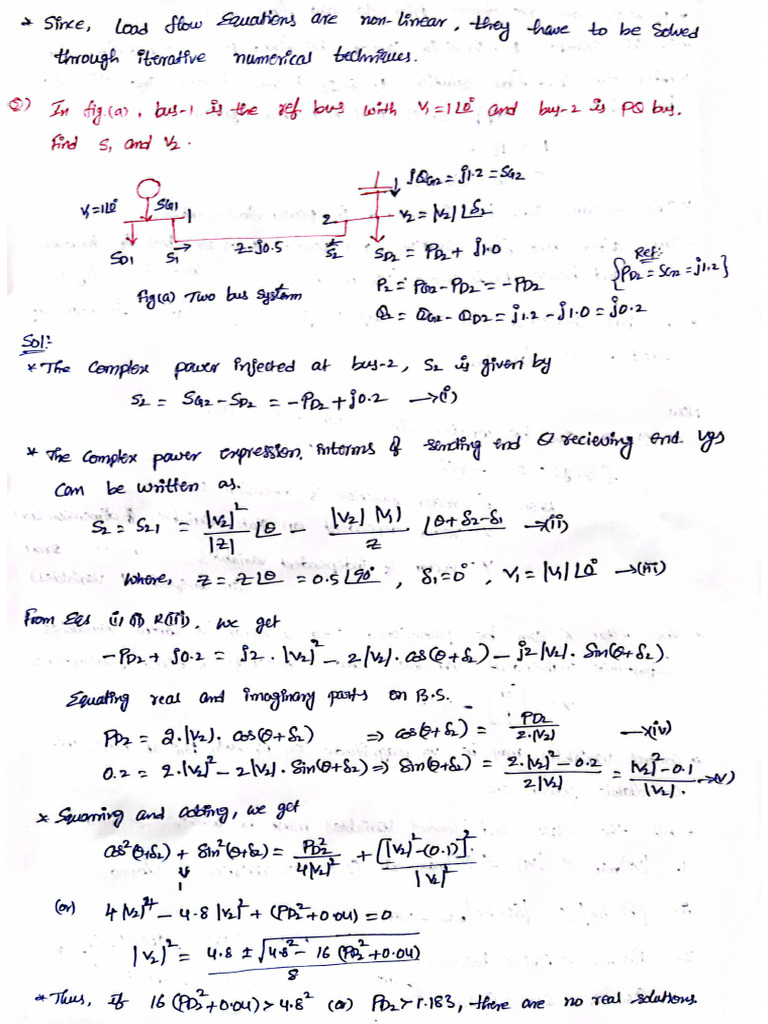 * Since, Load flow Equations are non-linear, they have to be Solved
through iterative numerical techniques.
Q) In fig.(a), bus-1 is the ref bus with V₁=1∠0° and bus-2 is PQ bus.
Find S₁ and V₂.
jQG2 = j1.2 = SG2
V₁=1∠0° SG1 1 2 V₂ = |V₂|∠δ₂
SD1 S₁ → Z=j0.5 S₂ SD2 = PD2 + j1.0
Ref:-
P₂ = PG2-PD2 = -PD2 {PD2 = SG2 = j1.2}
Fig(a) Two bus system
Q₂ = QG2 - QD2 = j1.2 - j1.0 = j0.2
Sol:-
* The Complex power injected at bus-2, S₂ is given by
S₂ = SG2 - SD2 = -PD2 + j0.2 →(i)
* The Complex power expression, interms of sending end & recieving end vgs
Can be written as.
S₂ = S₂₁ = |V₂|²/|Z| ∠θ - |V₂| |V₁|/Z ∠θ+δ₂-δ₁ →(ii)
Where, Z = Z∠θ = 0.5∠90°, δ₁=0°, V₁ = |V₁|∠0° →(iii)
From Eqs (i), (ii) & (iii), we get
-PD2 + j0.2 = j2.|V₂|² - 2|V₂|.cos(θ+δ₂) - j2|V₂|.Sin(θ+δ₂).
Equating real and imaginary parts on B.S.
PD2 = 2.|V₂|.cos(θ+δ₂) ⇒ cos(θ+δ₂) = PD2/2.|V₂| →(iv)
0.2 = 2.|V₂|² - 2|V₂|.Sin(θ+δ₂) ⇒ Sin(θ+δ₂) = 2.|V₂|²-0.2/2|V₂| = |V₂|²-0.1/|V₂|. →(v)
* Squarring and adding, we get
cos²(θ+δ₂) + Sin²(θ+δ₂) = PD2²/4|V₂|² + [|V₂|²-(0.1)]²/|V₂|²
1
(or) 4|V₂|⁴ - 4.8|V₂|² + (PD2²+0.04) = 0
|V₂|² = 4.8 ± √4.8² - 16(PD2²+0.04)/8
* Thus, if 16(PD2²+0.04) > 4.8² (or) PD2 > 1.183, there are no real solutions.